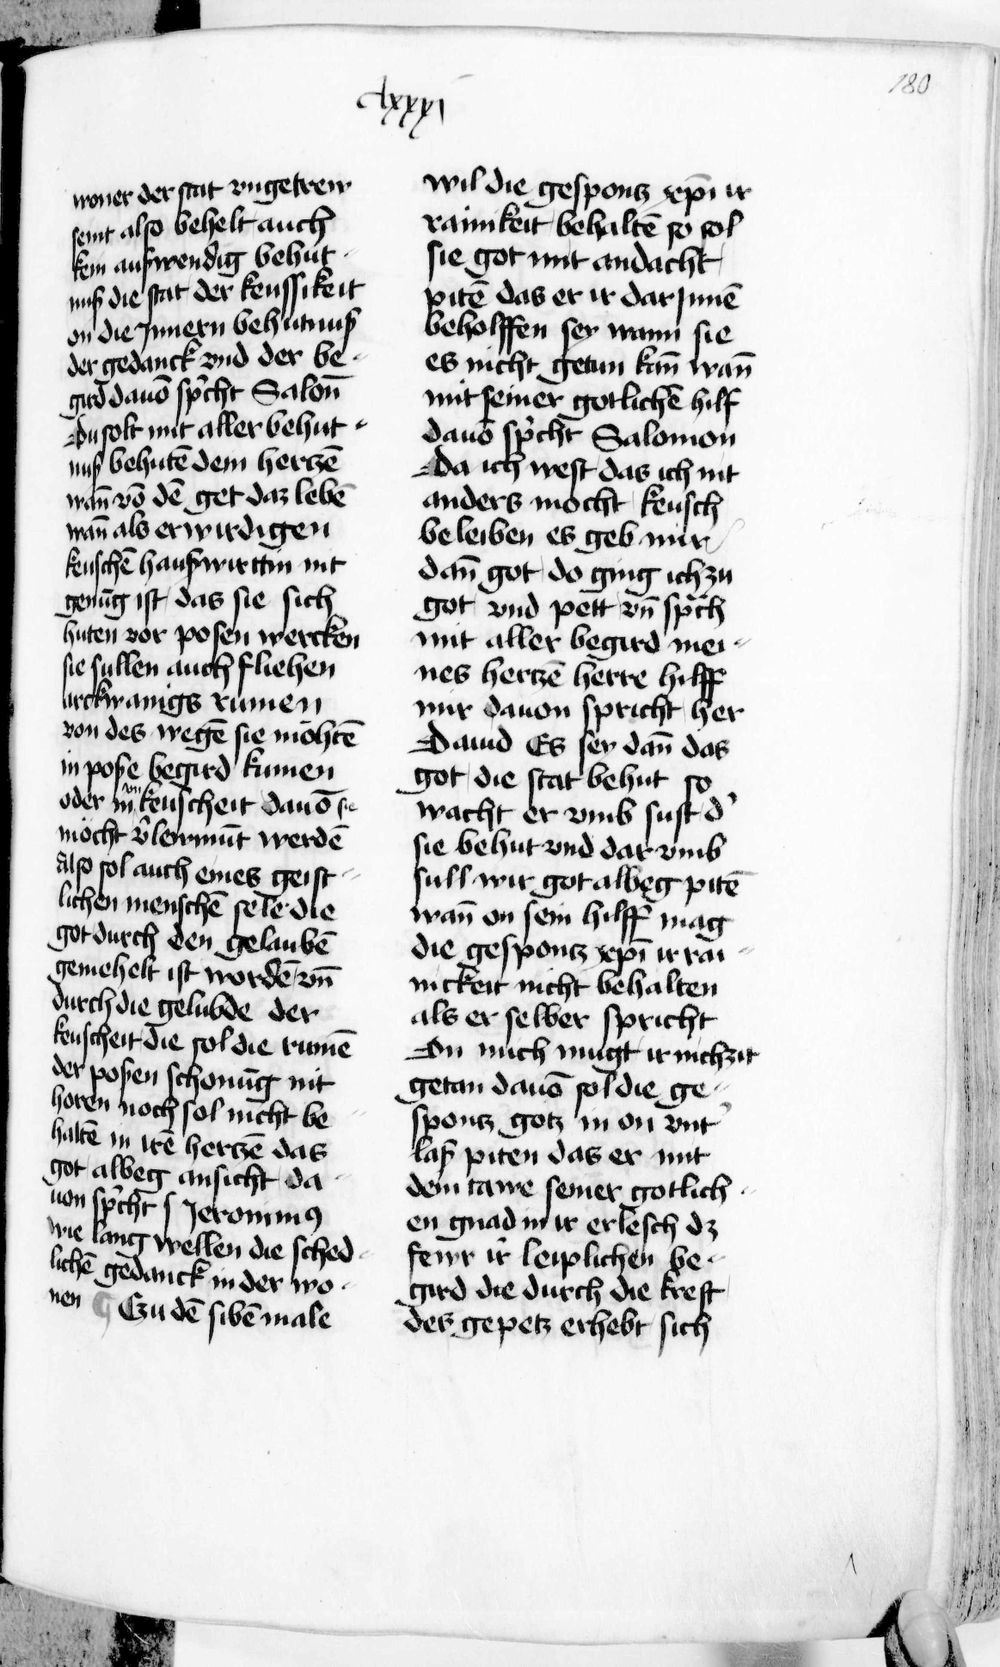 180
clxxxi
woner der stat vngetrew
seint also behelt auch
kein auſwendig behut-
nuſ die stat der keusſikeit
on die Innern behutnuſ
der gedanck vnd der be-
gird dauō spͥcht Salon̄
Du solt mit aller behut-
nuſ behutē dein hertzē
wan̄ vō dē get daz lebē
wan̄ als erwirdigen
keuschē hauſwirttin nit
genūg ist das sie sich
huten vor posen wercken
sie sullen auch fliehen
arckwanigs rumen
von des wegē sie mohtē
in poſe begird kumen
oder in vnkeuscheit dauō sie
mocht v̓lewmūt werdē
Also sol auch eines geist-
lichen menschē sele die
got durch den gelaubē
gemehelt ist wordē vn̄
durch die gelubde der
keuscheit die sol die rumē
der poſen schonūg nit
horen noch sol nicht be
haltē in irē hertzē das
got albeg ansicht da-
uon spͥcht s Jeronimꝰ
wie lang wellen die sched-
lichē gedanck in der wo-
nen ¶ Czu dē sibē male
wil die gesponcz xp̄i ir
rainikeit behaltē so sol
sie got mit andacht
pitē das er ir dar Innē
beholffen sey wann sie
es nicht getun kan̄ wan̄
mit seiner gotlichē hilf
dauō spͥcht Salomon
Da ich west das ich nit
anders mocht keusch
beleiben es geb mir
dan̄ got do ging ich zu
got vnd pett vn̄ sprͣch
mit aller begird mei-
nes hertzē herre hilff
mir dauon spricht her
Dauid Es sey dan̄ das
got die stat behut so
wacht er vmb sust d̓
sie behut vnd dar vmb
sull wir got albeg pitē
wan̄ on sein hilff mag
die gesponcz xp̄i ir rai-
nickeit nicht behalten
als er selber spricht
On mich mugt ir nichzit
getan dauō sol die ge-
sponcz gotz in on vnt̓
laſ piten das er mit
dem tawe seiner gotlich-
en gnad in ir erlesch dz
fewr ir leiplichen be-
gird die durch die kreft
des gepetz erhebt sich